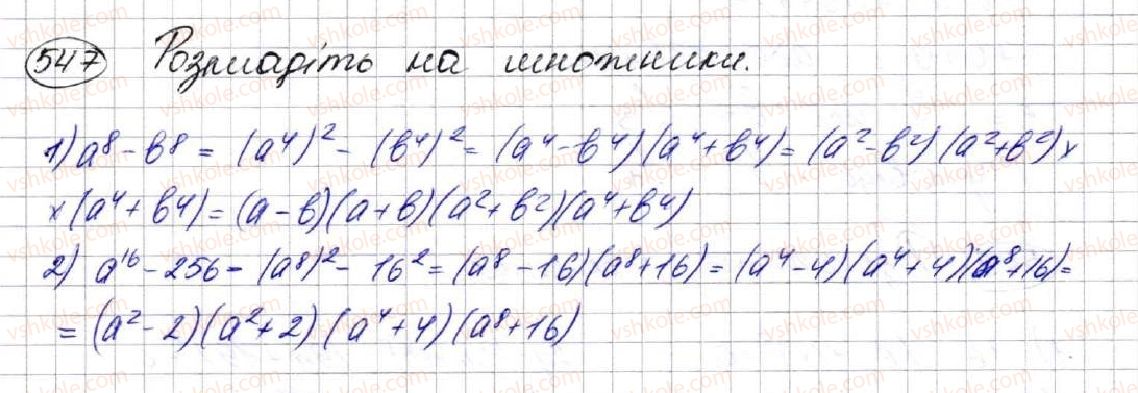 547 Розкладіть на множники.
1) a⁸ - b⁸ = (a⁴)² - (b⁴)² = (a⁴ - b⁴)(a⁴ + b⁴) = (a² - b²)(a² + b²) ×
× (a⁴ + b⁴) = (a - b)(a + b)(a² + b²)(a⁴ + b⁴)
2) a¹⁶ - 256 - (a⁸)² - 16² = (a⁸ - 16)(a⁸ + 16) = (a⁴ - 4)(a⁴ + 4)(a⁸ + 16) =
= (a² - 2)(a² + 2)(a⁴ + 4)(a⁸ + 16)